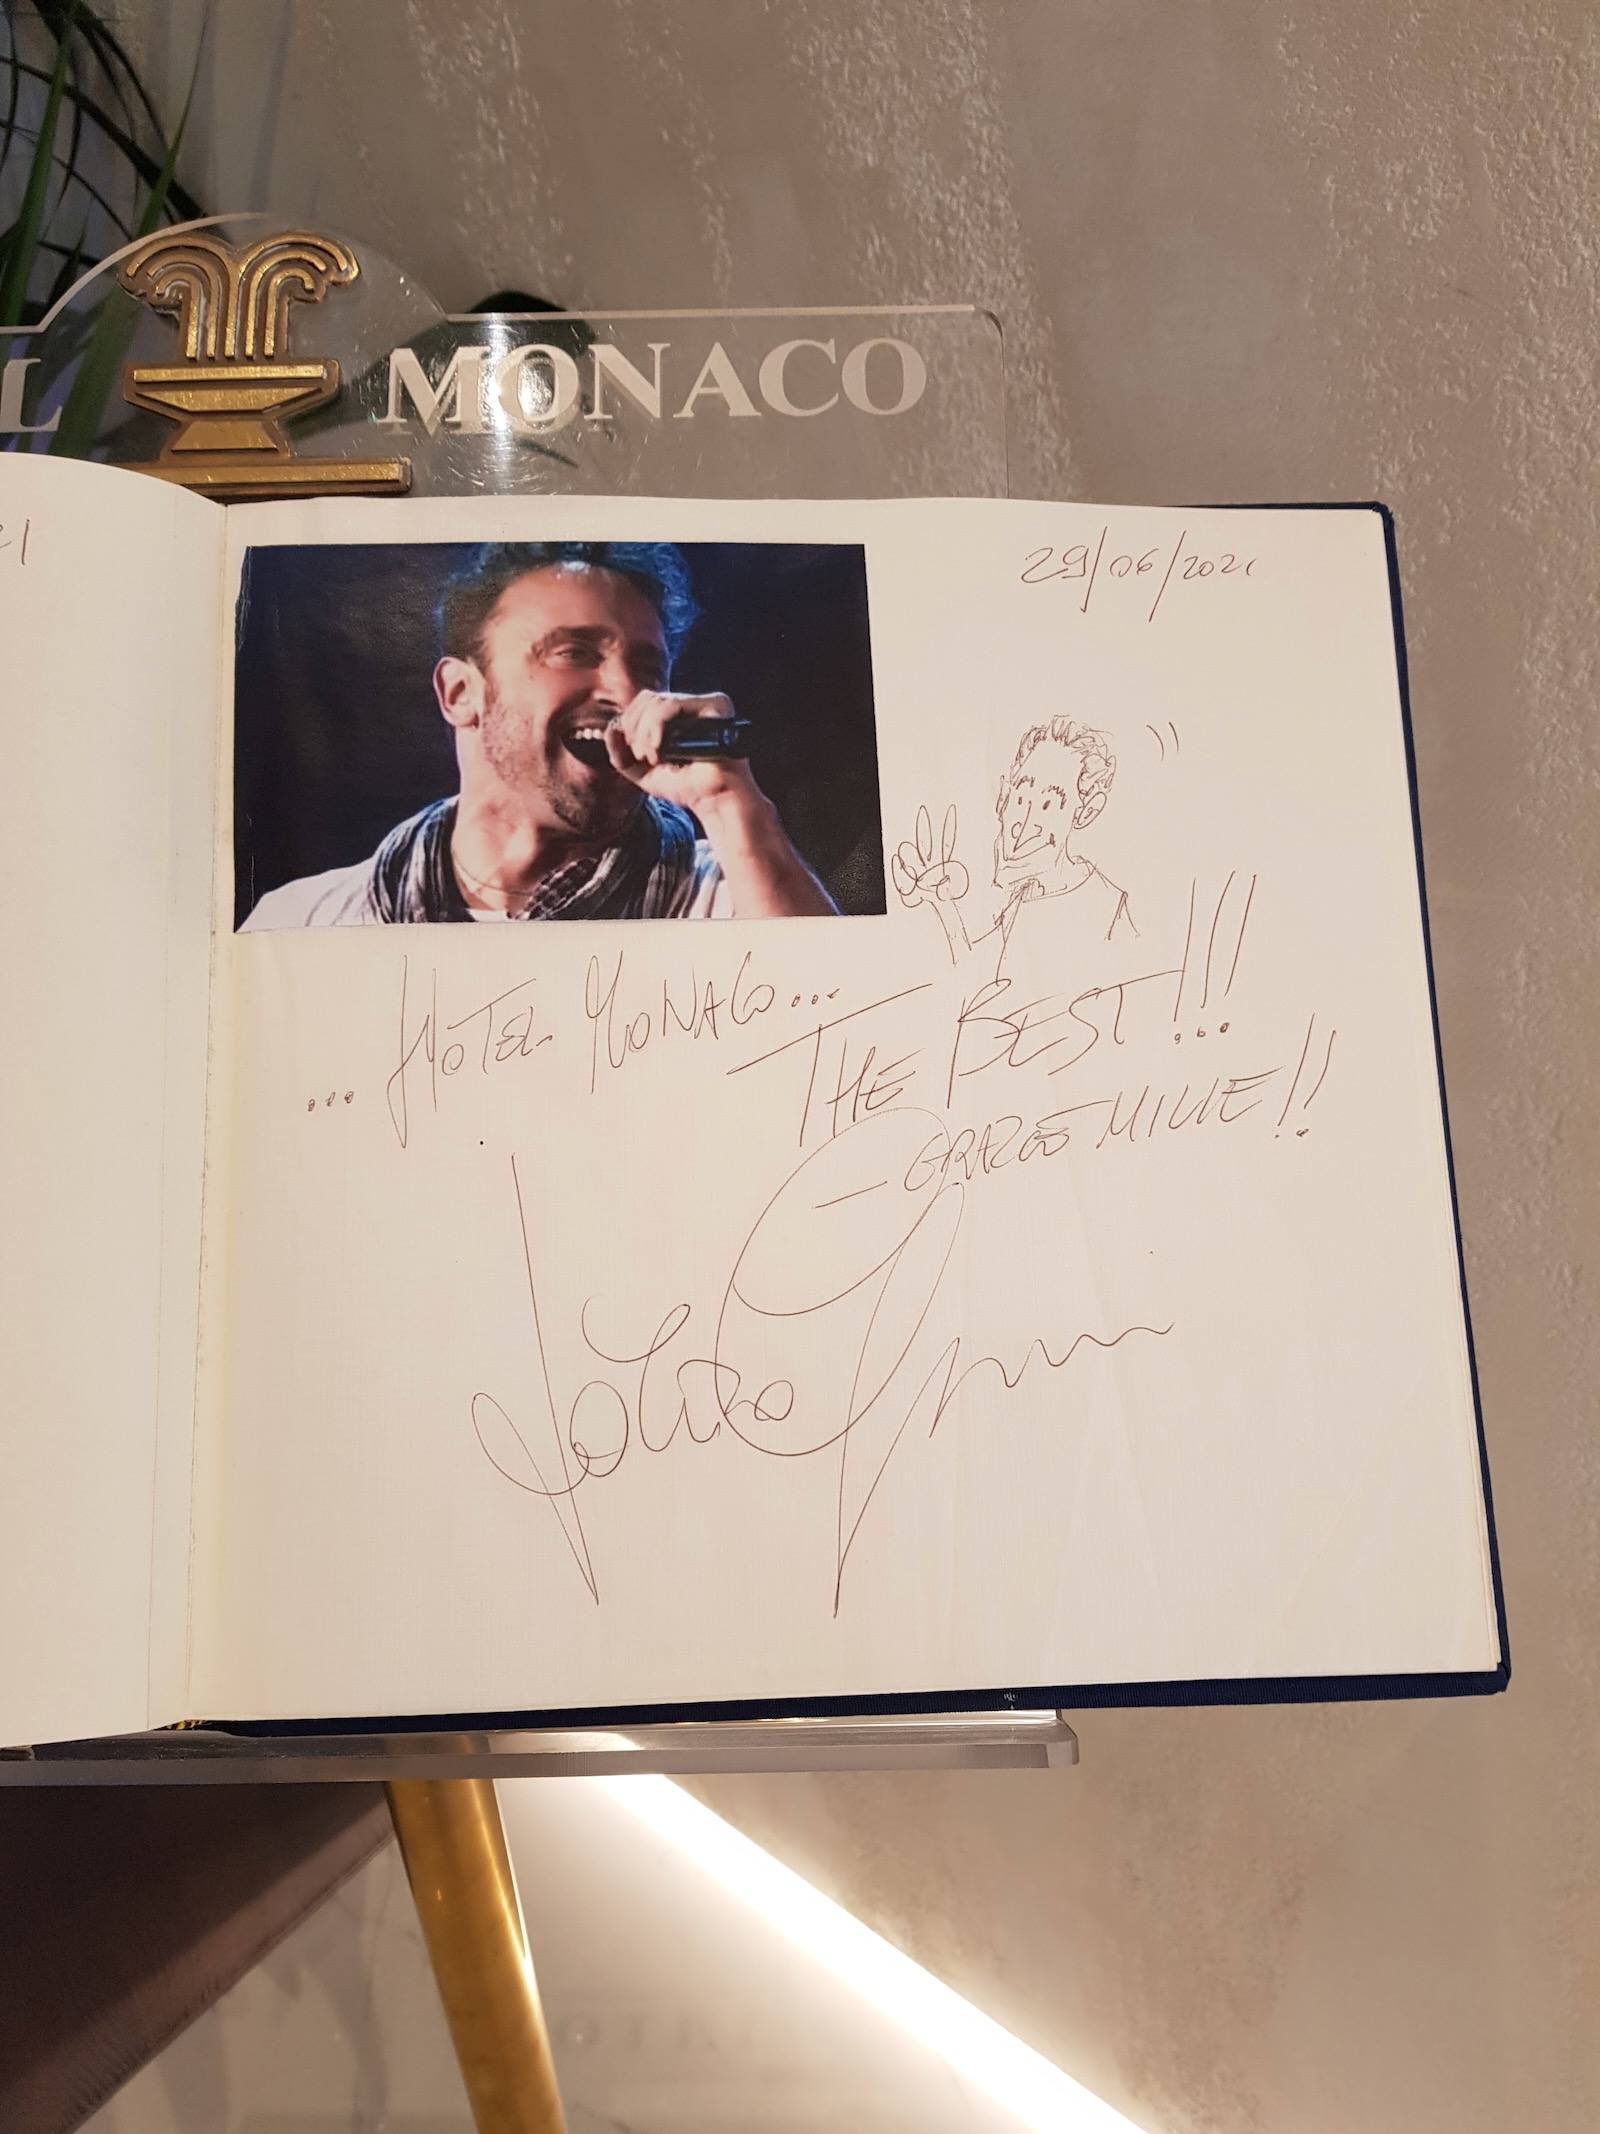 L MONACO
21
29/06/2021
... HOTEL MONACO...
THE BEST!!!...
- GRAZIE MILLE!!